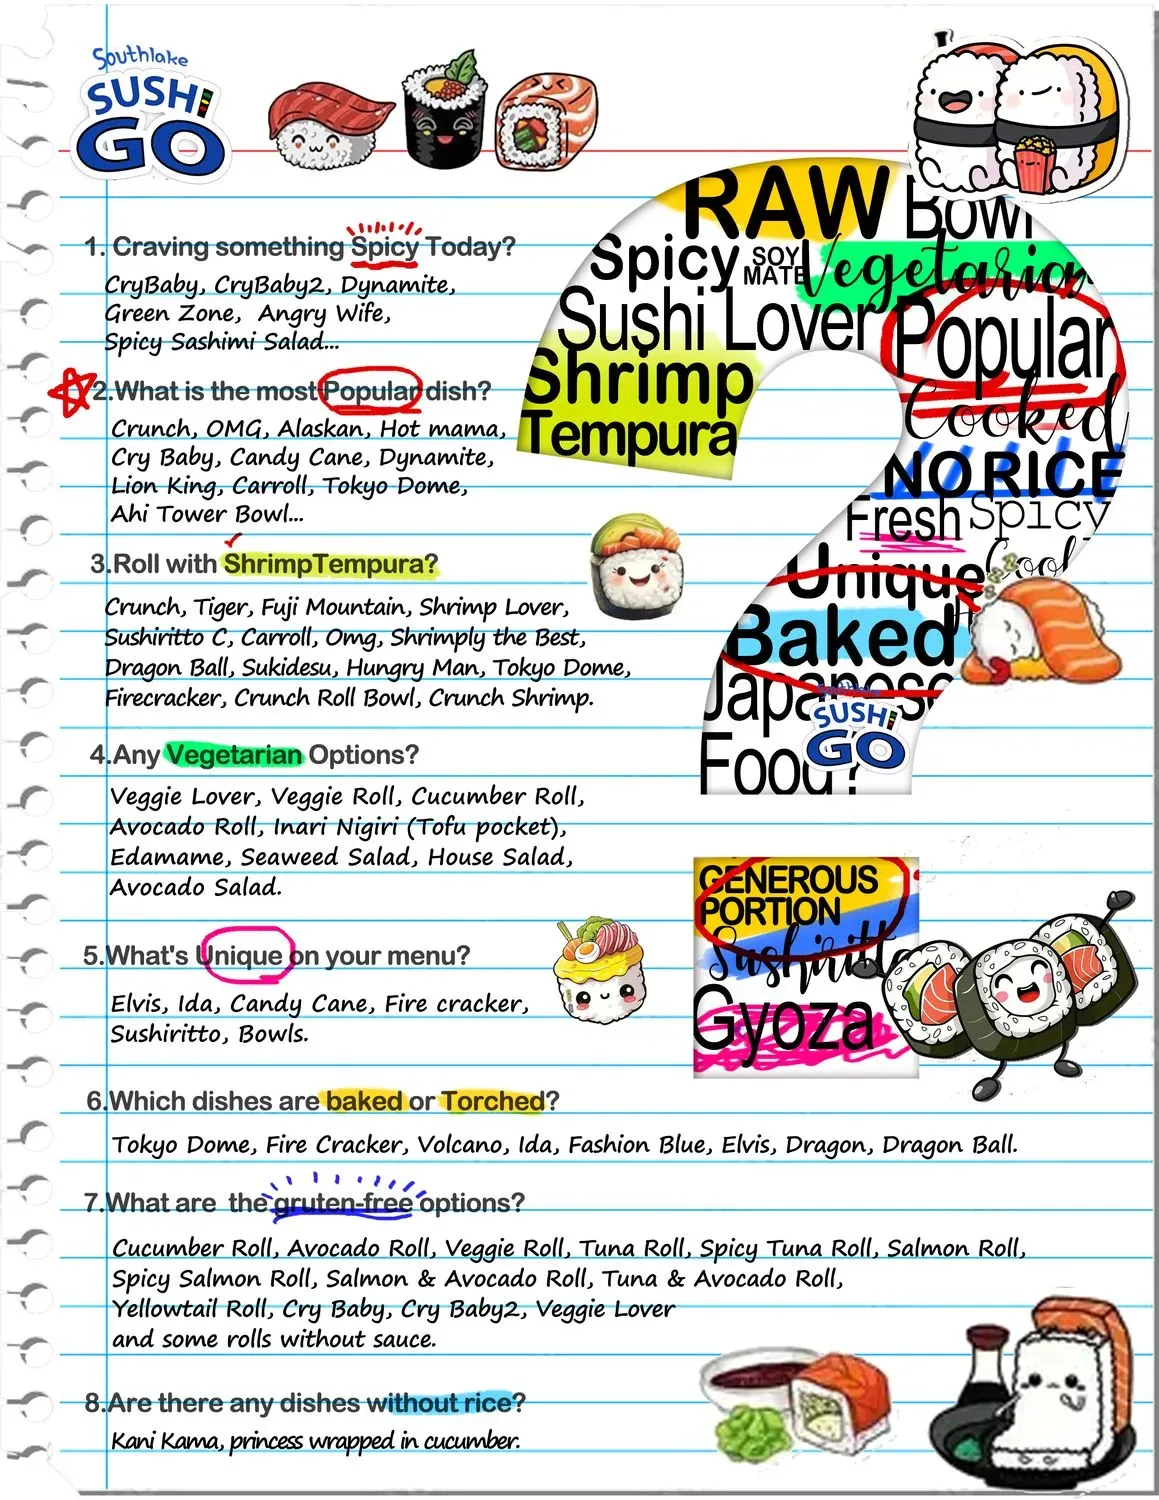 Southlake
SUSHi
GO
1. Craving something Spicy Today?
CryBaby, CryBaby2, Dynamite,
Green Zone, Angry Wife,
Spicy Sashimi Salad...
2.What is the most Popular dish?
Crunch, OMG, Alaskan, Hot mama,
Cry Baby, Candy Cane, Dynamite,
Lion King, Carroll, Tokyo Dome,
Ahi Tower Bowl...
3.Roll with ShrimpTempura?
Crunch, Tiger, Fuji Mountain, Shrimp Lover,
Sushiritto C, Carroll, Omg, Shrimply the Best,
Dragon Ball, Sukidesu, Hungry Man, Tokyo Dome,
Firecracker, Crunch Roll Bowl, Crunch Shrimp.
4.Any Vegetarian Options?
Veggie Lover, Veggie Roll, Cucumber Roll,
Avocado Roll, Inari Nigiri (Tofu pocket),
Edamame, Seaweed Salad, House Salad,
Avocado Salad.
5.What's Unique on your menu?
Elvis, Ida, Candy Cane, Fire cracker,
Sushiritto, Bowls.
6.Which dishes are baked or Torched?
Tokyo Dome, Fire Cracker, Volcano, Ida, Fashion Blue, Elvis, Dragon, Dragon Ball.
7.What are the gruten-free options?
Cucumber Roll, Avocado Roll, Veggie Roll, Tuna Roll, Spicy Tuna Roll, Salmon Roll,
Spicy Salmon Roll, Salmon & Avocado Roll, Tuna & Avocado Roll,
Yellowtail Roll, Cry Baby, Cry Baby2, Veggie Lover
and some rolls without sauce.
8.Are there any dishes without rice?
Kani Kama, princess wrapped in cucumber.
RAW Bowl
Spicy SOY MATE Vegetarian
Sushi Lover Popular
Shrimp
Tempura
Cooked
NO RICE
Fresh Spicy
Unique
Baked
Japanese
Food?
Southlake
SUSHi
GO
GENEROUS
PORTION
Sushiritto
Gyoza